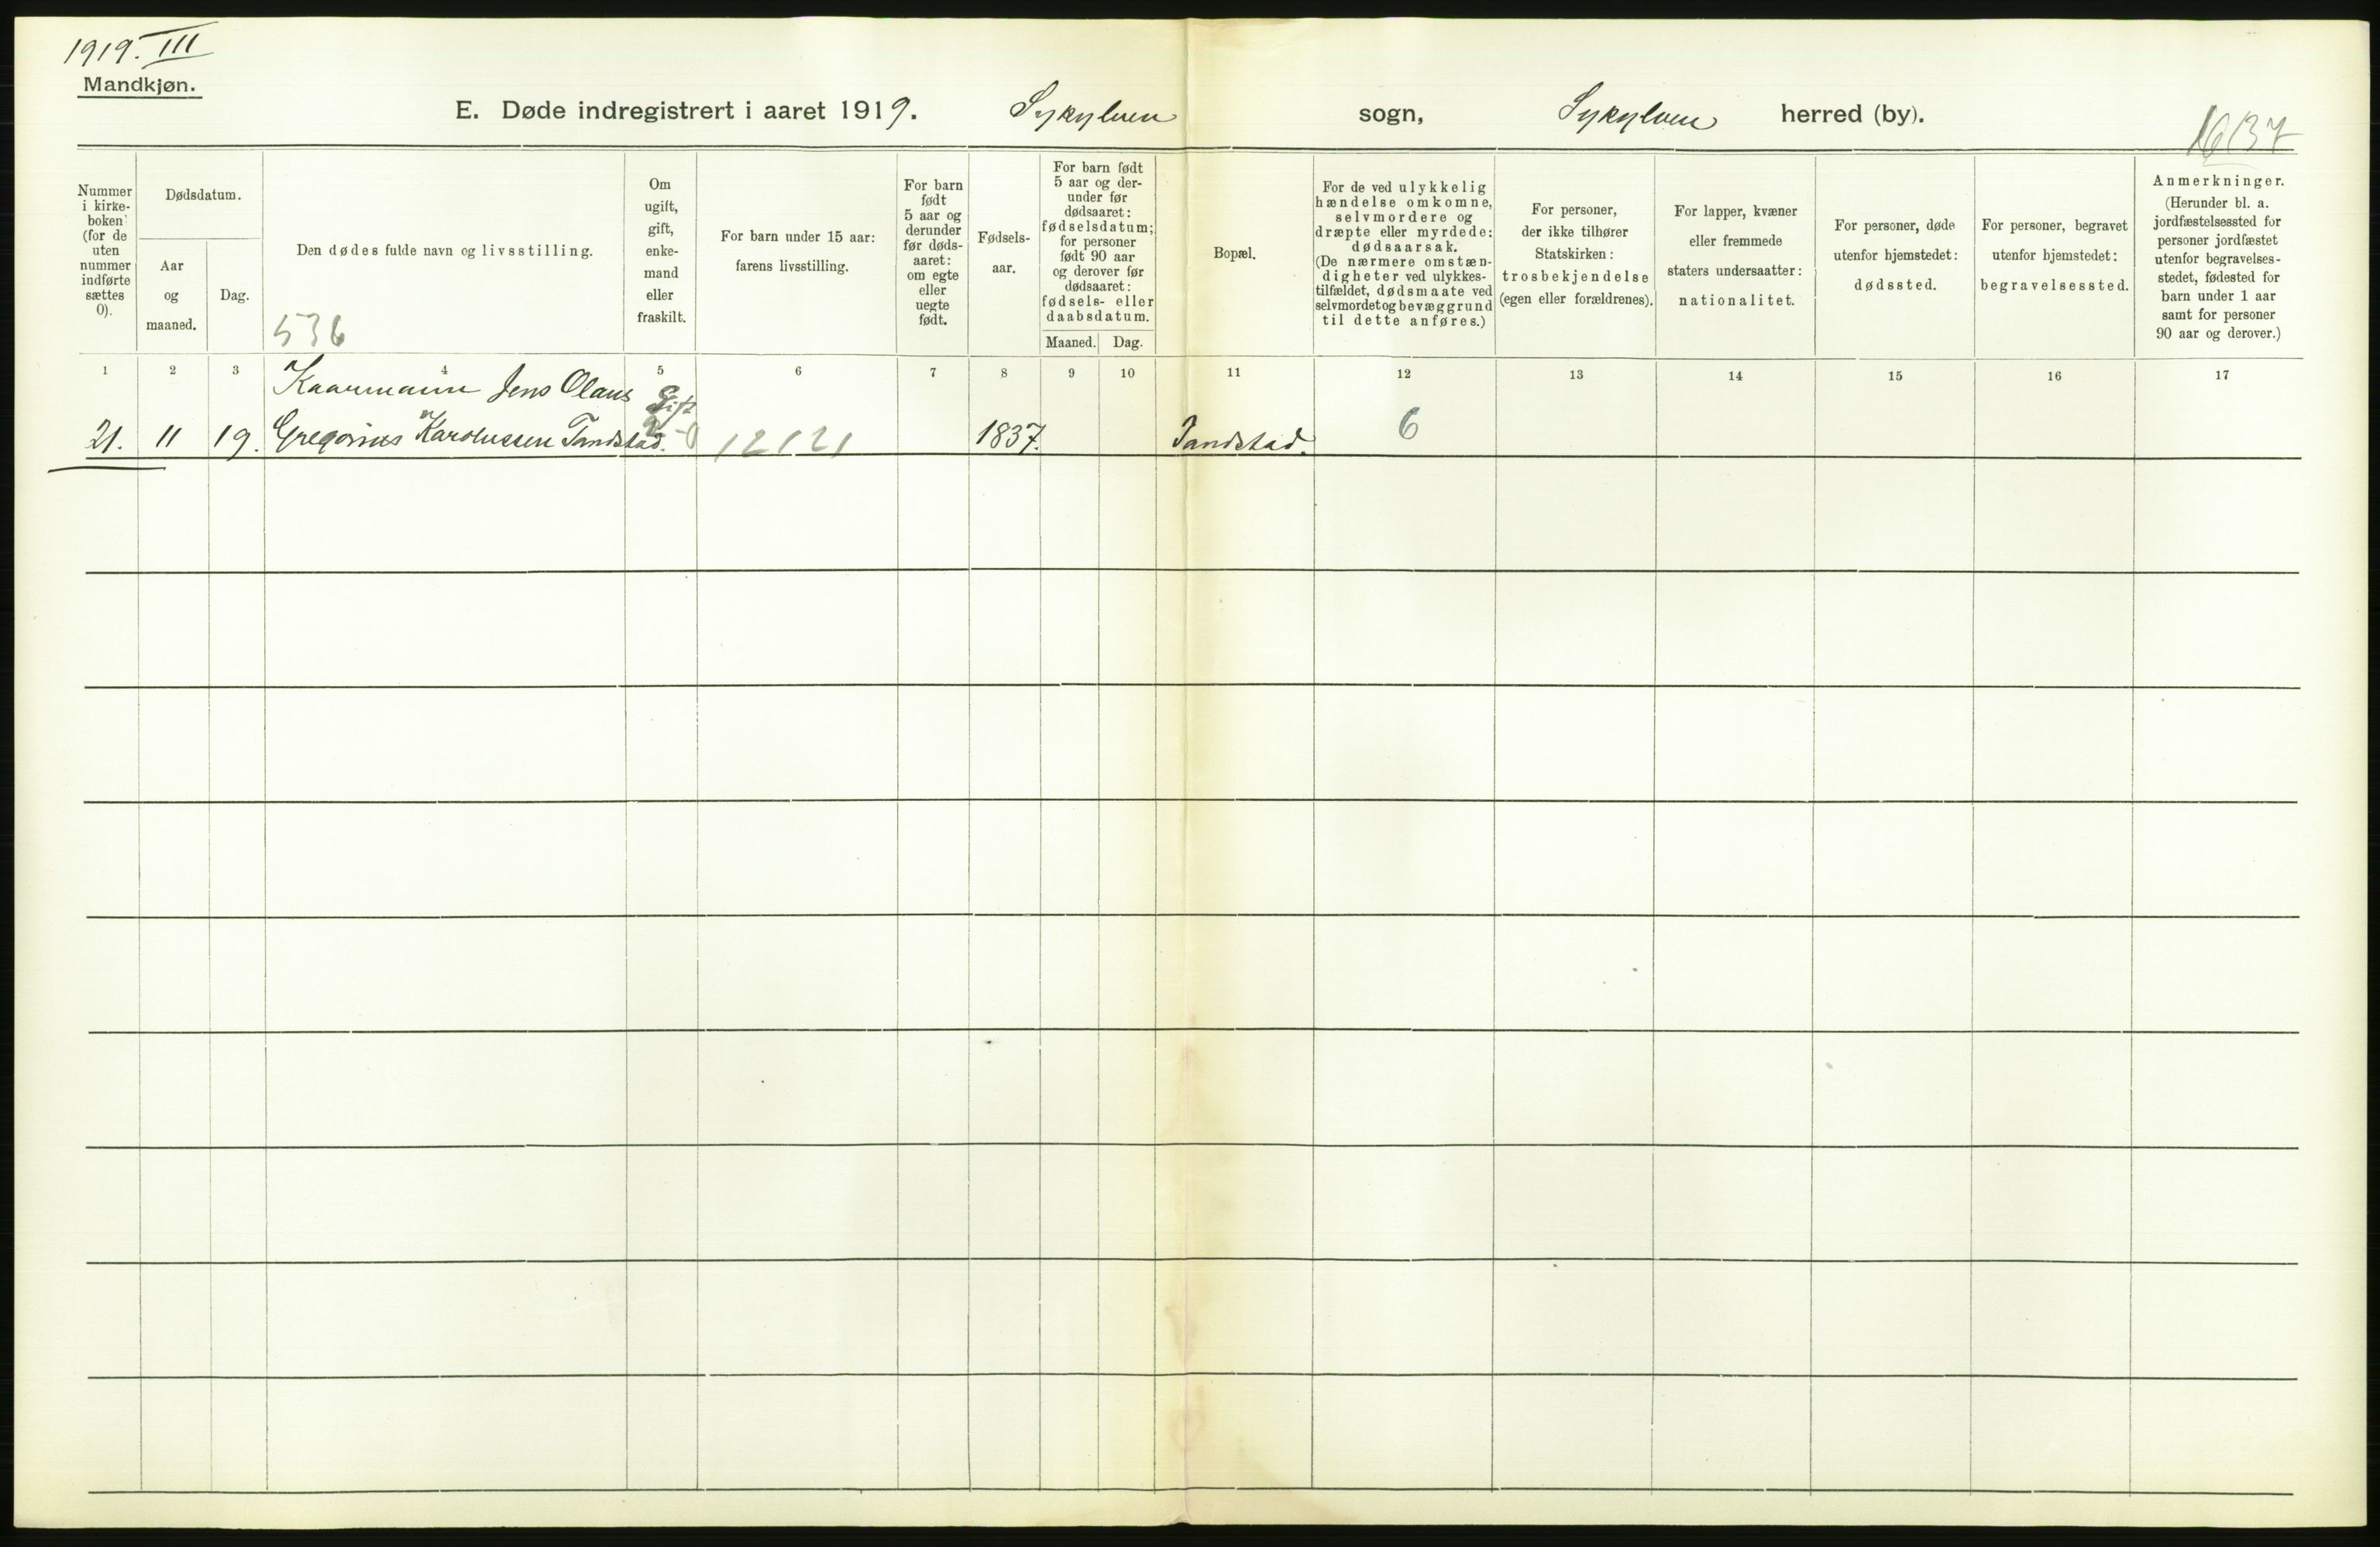 1919. III
Mandkjøn.
E. Døde indregistrert i aaret 1919. Sykylven sogn, Sykylven herred (by).
1637
Nummer i kirke- boken (for de uten nummer indførte sættes 0).
Dødsdatum.
Aar og maaned.
Dag.
Den dødes fulde navn og livsstilling.
536
Om ugift, gift, enke- mand eller fraskilt.
For barn under 15 aar: farens livsstilling.
For barn født 5 aar og derunder før døds- aaret: om egte eller uegte født.
Fødsels- aar.
For barn født 5 aar og der- under før dødsaaret: fødselsdatum; for personer født 90 aar og derover før dødsaaret: fødsels- eller daabsdatum.
Maaned. Dag.
Bopæl.
For de ved ulykkelig hændelse omkomne, selvmordere og dræpte eller myrdede: dødsaarsak. (De nærmere omstæn- digheter ved ulykkes- tilfældet, dødsmaate ved selvmordet og bevæggrund til dette anføres.)
For personer, der ikke tilhører Statskirken: trosbekjendelse (egen eller forældrenes).
For lapper, kvæner eller fremmede staters undersaatter: nationalitet.
For personer, døde utenfor hjemstedet: dødssted.
For personer, begravet utenfor hjemstedet: begravelsessted.
Anmerkninger. (Herunder bl. a. jordfæstelsessted for personer jordfæstet utenfor begravelses- stedet, fødested for barn under 1 aar samt for personer 90 aar og derover.)
1 2 3 4 5 6 7 8 9 10 11 12 13 14 15 16 17
Kaarmann Jens Olaus Gift
21. 11 19. Gregorius Karolussen Tandstad. 12121 1837. Tandstad. 6